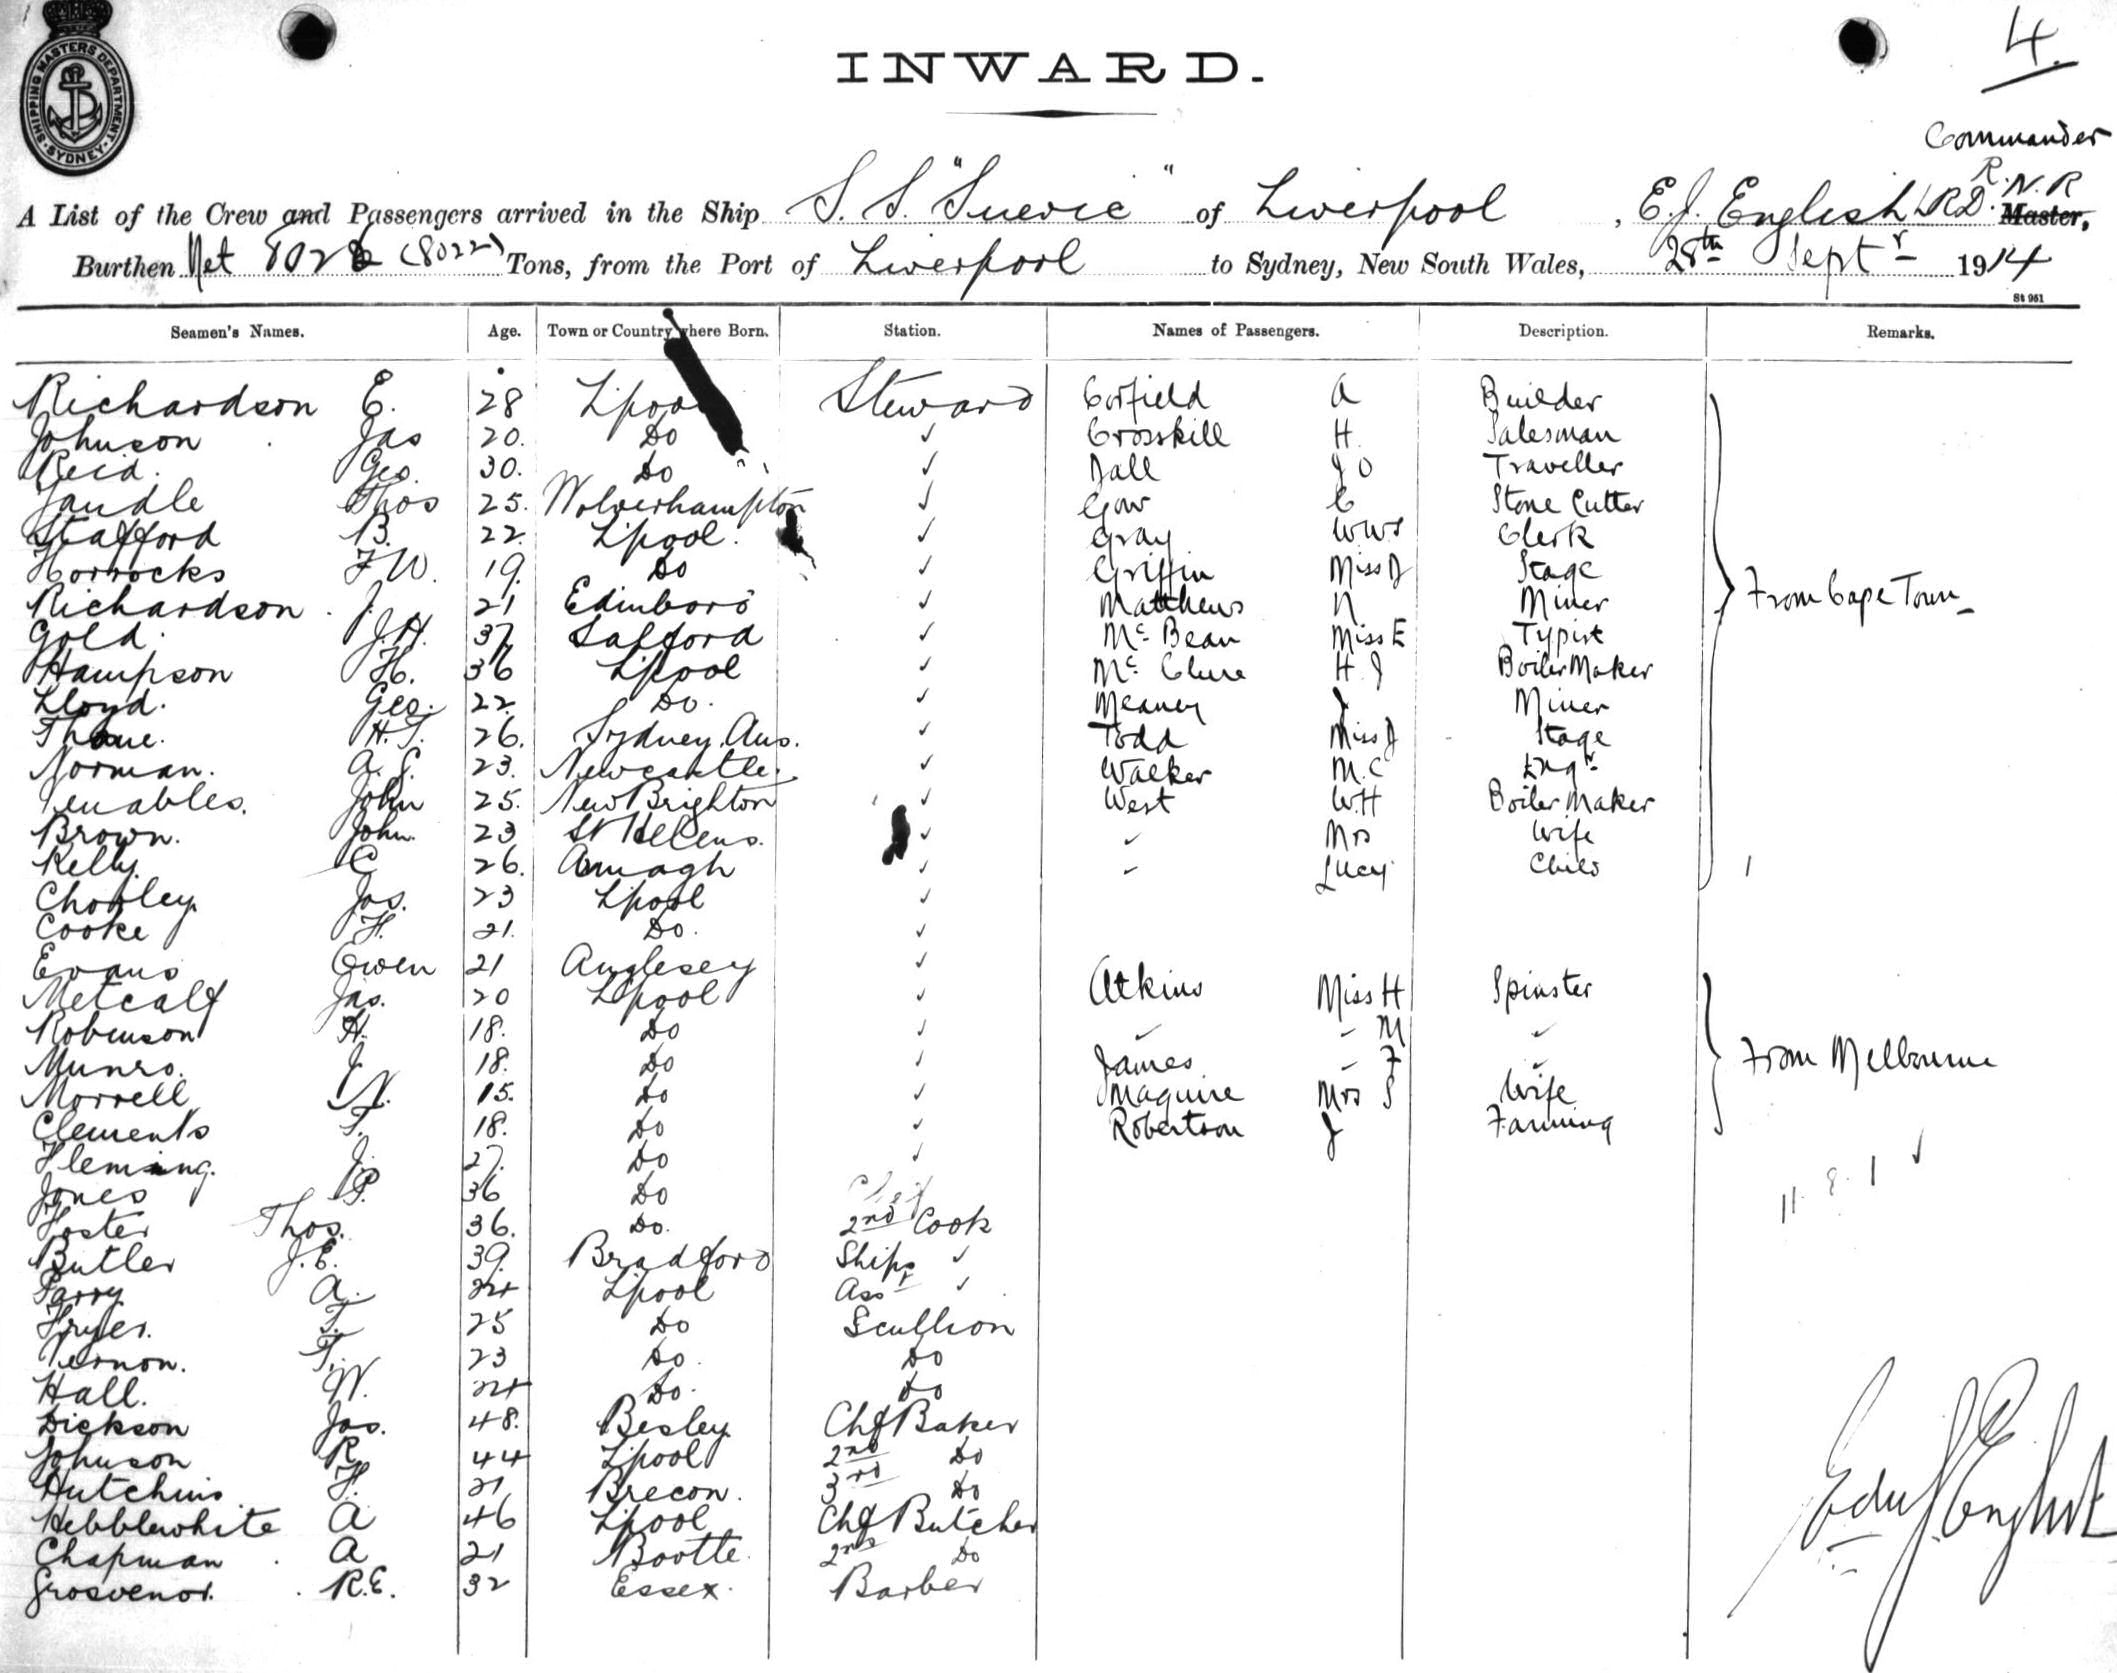 INWARD.
4.
SHIPPING MASTERS DEPARTMENT. SYDNEY.
Commander
R.N.R
A List of the Crew and Passengers arrived in the Ship S. S. "Suevic" of Liverpool, E.J. English RD. Master,
Burthen Net (8022) Tons, from the Port of Liverpool to Sydney, New South Wales, 28th Septr 1914
St 961
Seamen's Names. Age. Town or Country where Born. Station. Names of Passengers. Description. Remarks.
Richardson E. 28 Lpool Steward Corfield A Builder
Johnson Jas 20. Do ✓ Crosskill H. Salesman
Reid. Geo. 30. Do ✓ Dall J O Traveller
Jandle Thos 25. Wolverhampton ✓ Gow C Stone Cutter
Stafford B. 22. Lpool. ✓ Gray WWS Clerk
Horrocks F.W. 19. Do ✓ Griffin Miss D Stage
Richardson J. 21 Edinboro ✓ Matthews N Miner From Cape Town
Gold. J.H. 37 Salford ✓ Mc Bean Miss E Typist
Hampson H. 36 Lpool ✓ Mc Clure H J Boiler Maker
Lloyd. Geo. 22. Do. ✓ Meaney J Miner
H.T. 26. Sydney, Aus. ✓ Todd Miss J Stage
Norman. A.G. 23. Newcastle. ✓ Walker M.C Engr
Venables. John 25. New Brighton ✓ West WH Boiler Maker
Brown. John. 23 St Helens. ✓ " Mrs Wife
Kelly. C 26. Armagh ✓ " Lucy Child 1
Chorley Jas. 23 Lpool ✓
Cooke H. 21. Do. ✓
Evans Owen 21 Anglesey ✓
Metcalf Jas. 20 Lpool ✓ Atkins Miss H Spinster
Robinson H. 18. Do ✓ " " M "
Munro. J. 18. Do ✓ James " F " From Melbourne
Morrell N. 15. Do ✓ Maguire Mrs S Wife
Clements T. 18. Do ✓ Robertson J Farming
Fleming. J. 27. Do ✓
Jones P. 36 Do Chef
Foster Thos. 36. Do. 2nd Cook
Butler J.E. 39. Bradford Ships ✓
Parry A. 24 Lpool Asst ✓
Fryer. F. 25 Do Scullion
Vernon. T. 23 Do. Do
Hall. W. 24 Do. Do
Dickson Jas. 48. Besley Chf Baker
Johnson R. 44 Lpool 2nd Do
Hutchins H. 21 Brecon. 3rd Do
Hebblewhite A 46 Lpool Chf Butcher
Chapman A 21 Bootle 2nd Do
Grosvenor. R.E. 32 Essex. Barber
11. 8. 1 ✓
Edw J English